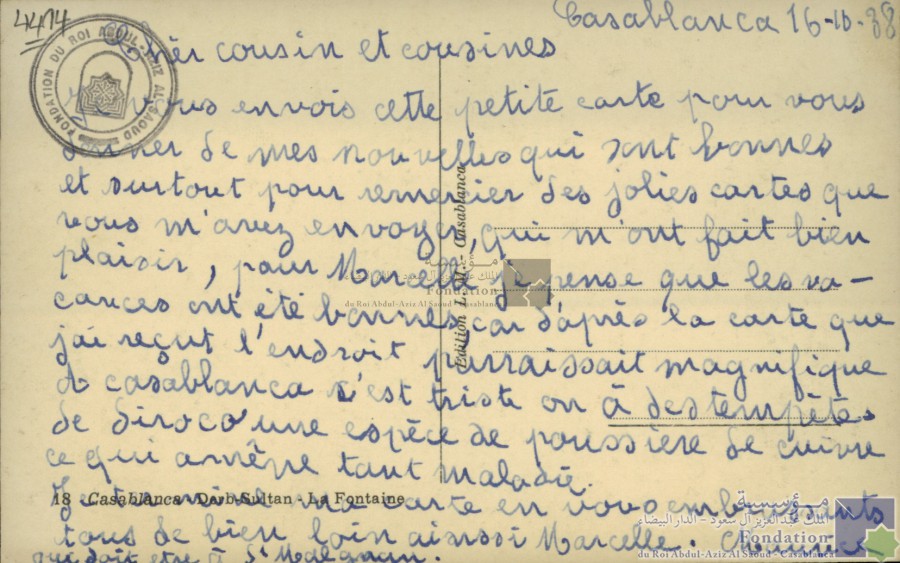 4414
Casablanca 16-10-38
Chèr cousin et cousines
FONDATION DU ROI ABDUL-AZIZ AL SAOUD
Je vous envois cette petite carte pour vous
donner de mes nouvelles qui sont bonnes
et surtout pour remercier des jolies cartes que
vous m'avez envoyer, qui m'ont fait bien
plaisir, pour Marcelle je pense que les va-
cances ont été bonnes, car d'après la carte que
j'ai reçut l'endroit parraissait magnifique
à casablanca c'est triste on à des tempêtes
de siroco une espèce de poussière de cuivre
ce qui amène tant maladie.
Je termine ma carte en vous embrassants
tous de bien loin ainssi Marcelle.
qui doit etre à St
Edition L. M. - Casablanca
18 Casablanca - Derb-Sultan - La Fontaine
مؤسسة
الملك عبد العزيز آل سعود - الدار البيضاء
Fondation
du Roi Abdul-Aziz Al Saoud - Casablanca
مؤسسة
الملك عبد العزيز آل سعود - الدار البيضاء
Fondation
du Roi Abdul-Aziz Al Saoud - Casablanca